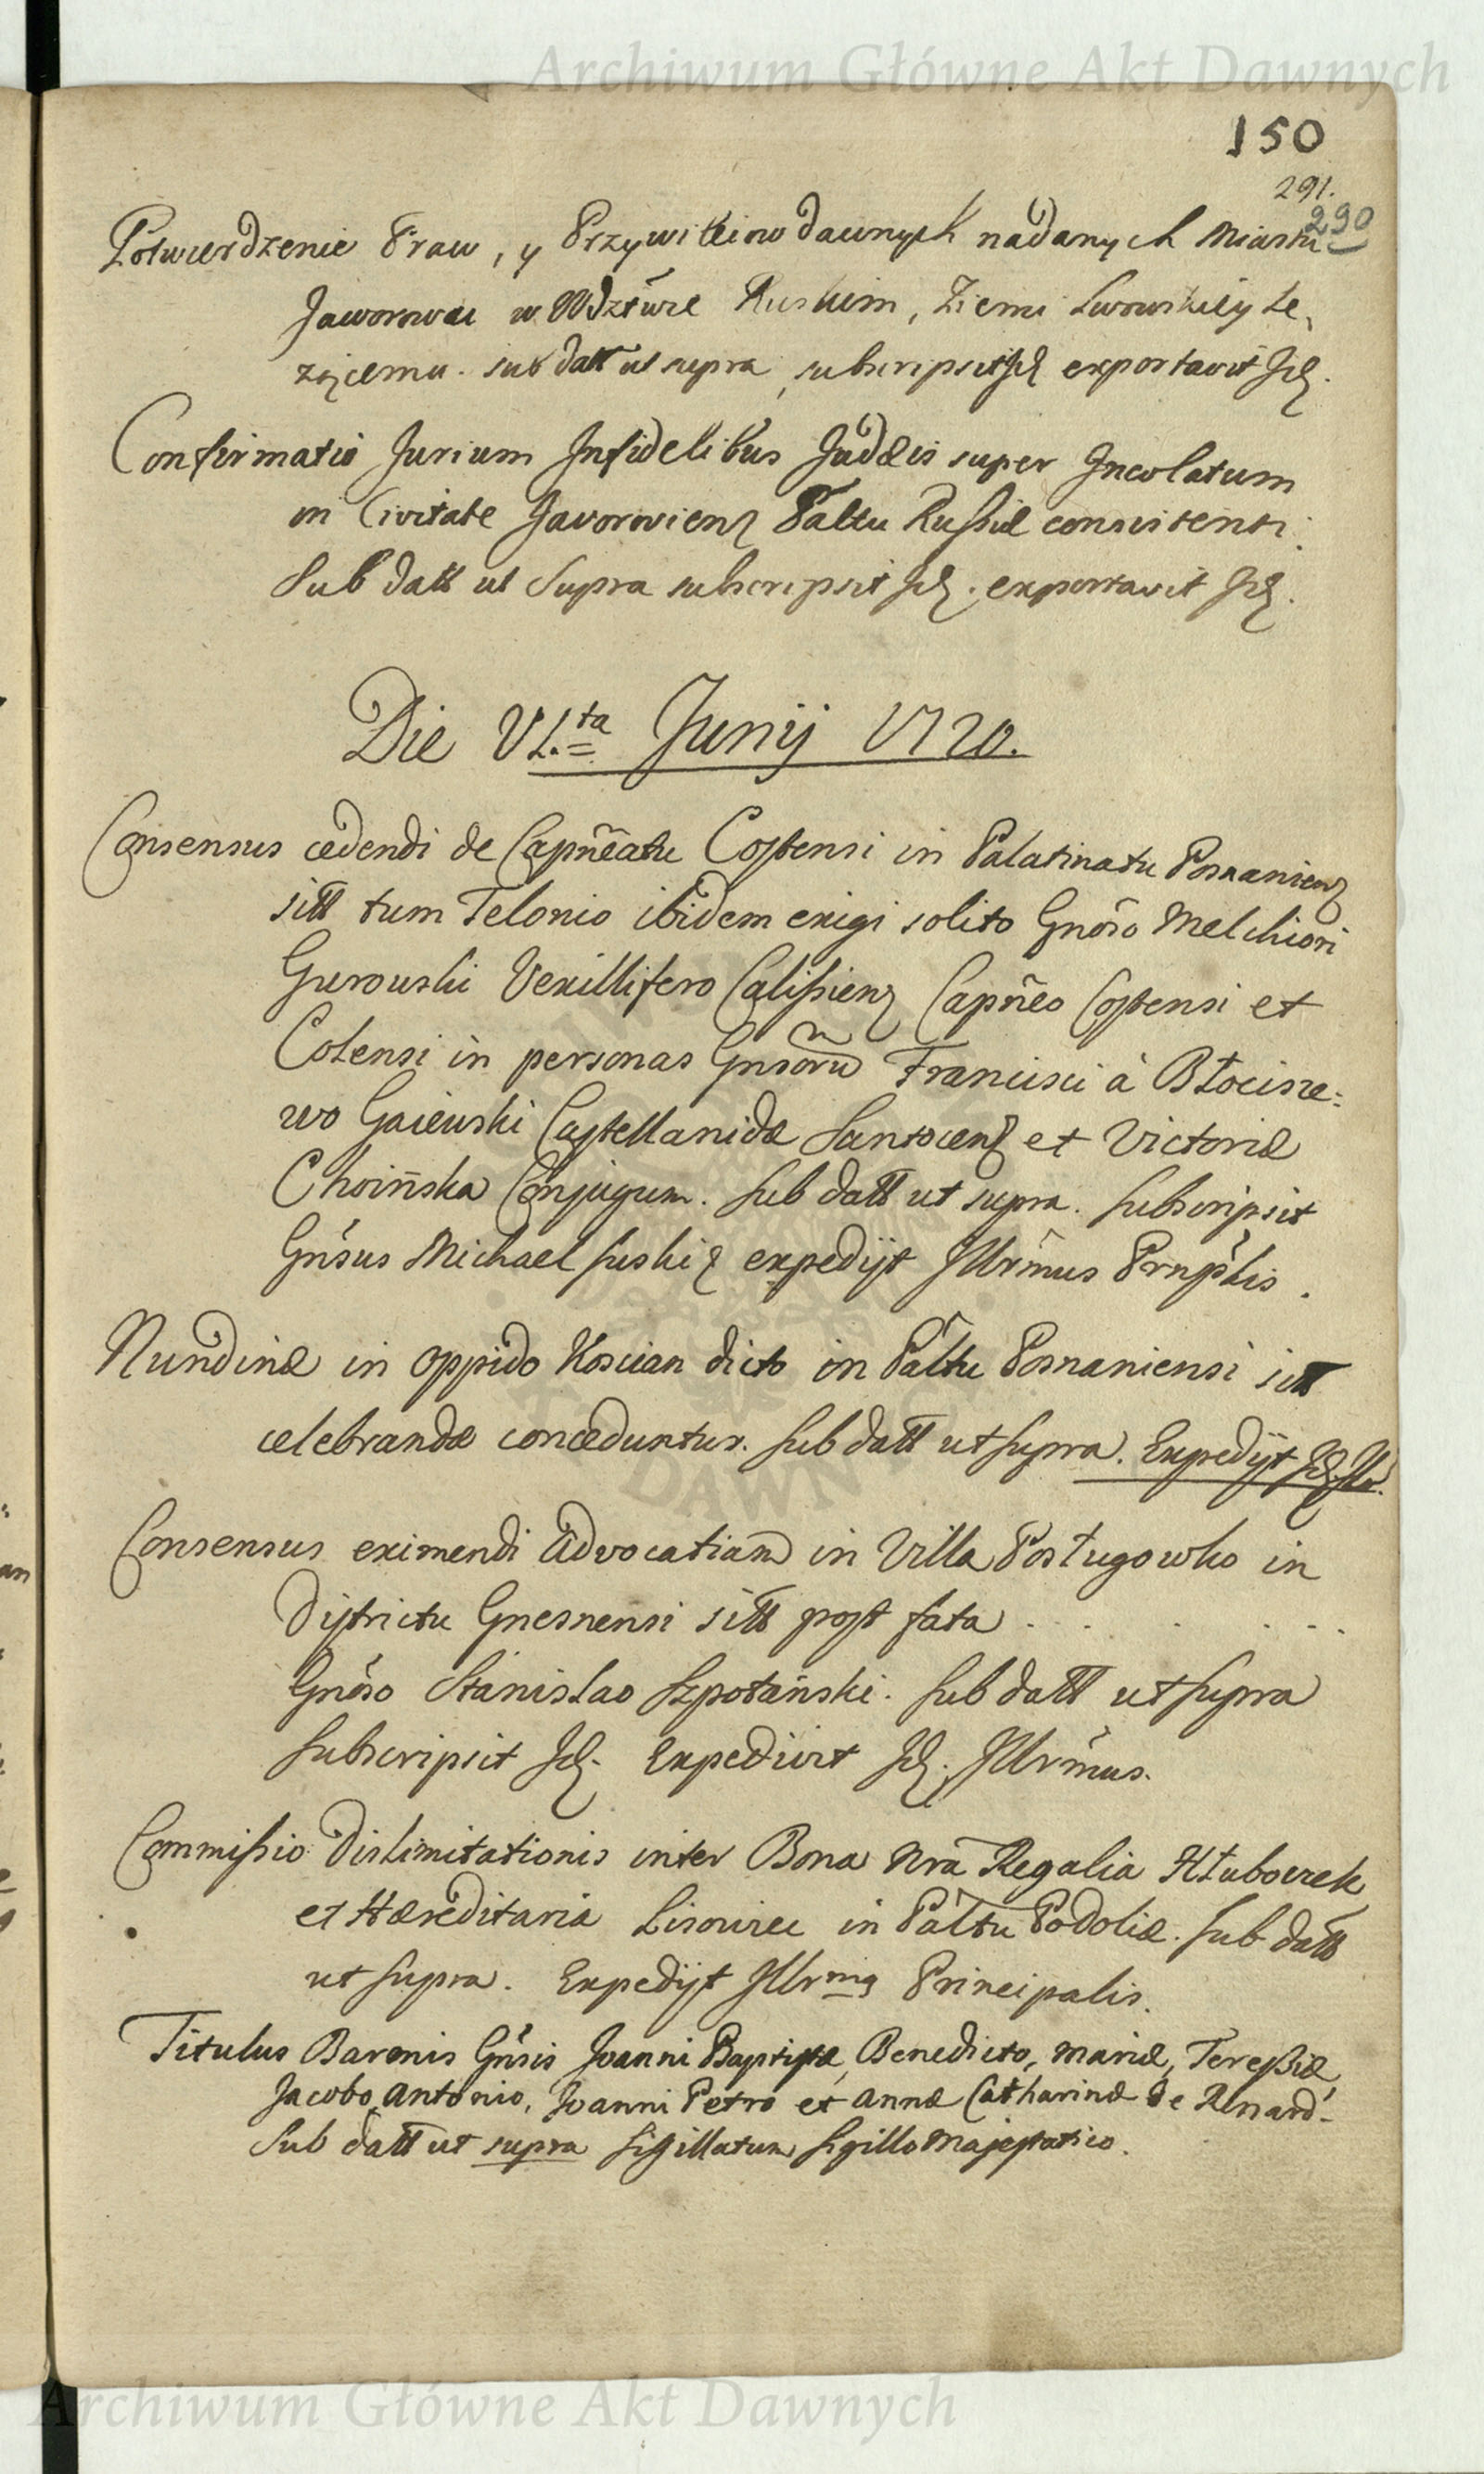 Archiwum Główne Akt Dawnych
150
291.
290
Potwierdzenie Praw, y Przywileiow dawnych nadanych Miastu
Jaworowu w Wdztwie Ruskim, Ziemi Lwowskiey le,
zącemu. sub datt ut supra, subscripsit Id exportavit Id.
Confirmatio Jurium Infidelibus Judæis super Incolatum
in Civitate Javorovien Paltu Russiæ consistenti.
Sub datt ut Supra subscripsit Id. exportavit Id.
Die VI.ta Junij 1720.
Consensus cedendi de Capñeatu Costensi in Palatinatu Posnanien
sitt tum Telonio ibidem exigi solito Gnoso Melchiori
Gurowski Vexillifero Calissien Capñeo Costensi et
Colensi in personas Gnsorũ Francisci à Błocisze=
wo Gaiewski Castellanidæ Santocen et Victoriæ
Choińska Conjugum. Sub datt ut supra. Subscripsit
Gnsus Michael Suski expedijt Illrmus Prnplis.
Nundinæ in oppido Koscian dicto in Paltu Posnaniensi sitt
celebrandæ conceduntur. Sub datt ut Supra. Expedijt Id. Ilr.
Consensus eximendi Advocatiam in Villa Postugowko in
Districtu Gnesnensi sitt post fata . . . . . . .
Gnoso Stanislao Szpotański. Sub datt ut Supra
Subscripsit Id. Expedivit Id. Illrmus.
Commissio Dislimitationis inter Bona Nra Regalia Hłuboczek
et Hæreditaria Lisowiec in Paltu Podoliæ. Sub datt
ut Supra. Expedijt Illrmus Principalis.
Titulus Baronis Gnsis Joanni Baptistæ, Benedicto, Mariæ, Teressiæ,
Jacobo, Antonio, Joanni Petro et Annæ Catharinæ de Renard.
Sub datt ut supra Sigillatum Sigillo Majestatico.
Archiwum Główne Akt Dawnych